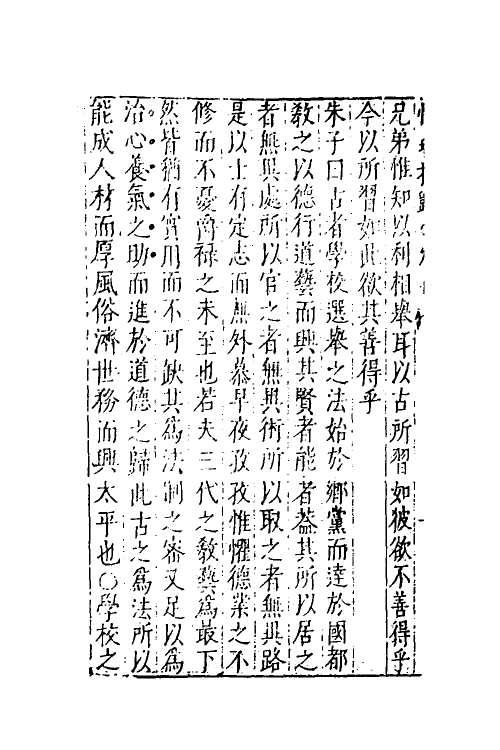 兄弟惟知以利相攀耳以古所習如彼欲不善得乎
今以所習如此欲其善得乎
朱子曰古者學校選舉之法始於鄉黨而達於國都
敎之以德行道藝而興其賢者能者葢其所以居之
者無異處所以官之者無異術所以取之者無異路
是以士有定志而無外慕早夜孜孜惟懼德業之不
修而不憂爵祿之未至也若夫三代之敎藝爲最下
然皆猶有實用而不可缺其爲法制之密又足以爲
治心養氣之助而進於道德之歸此古之爲法所以
能成人材而厚風俗濟世務而興太平也○學校之